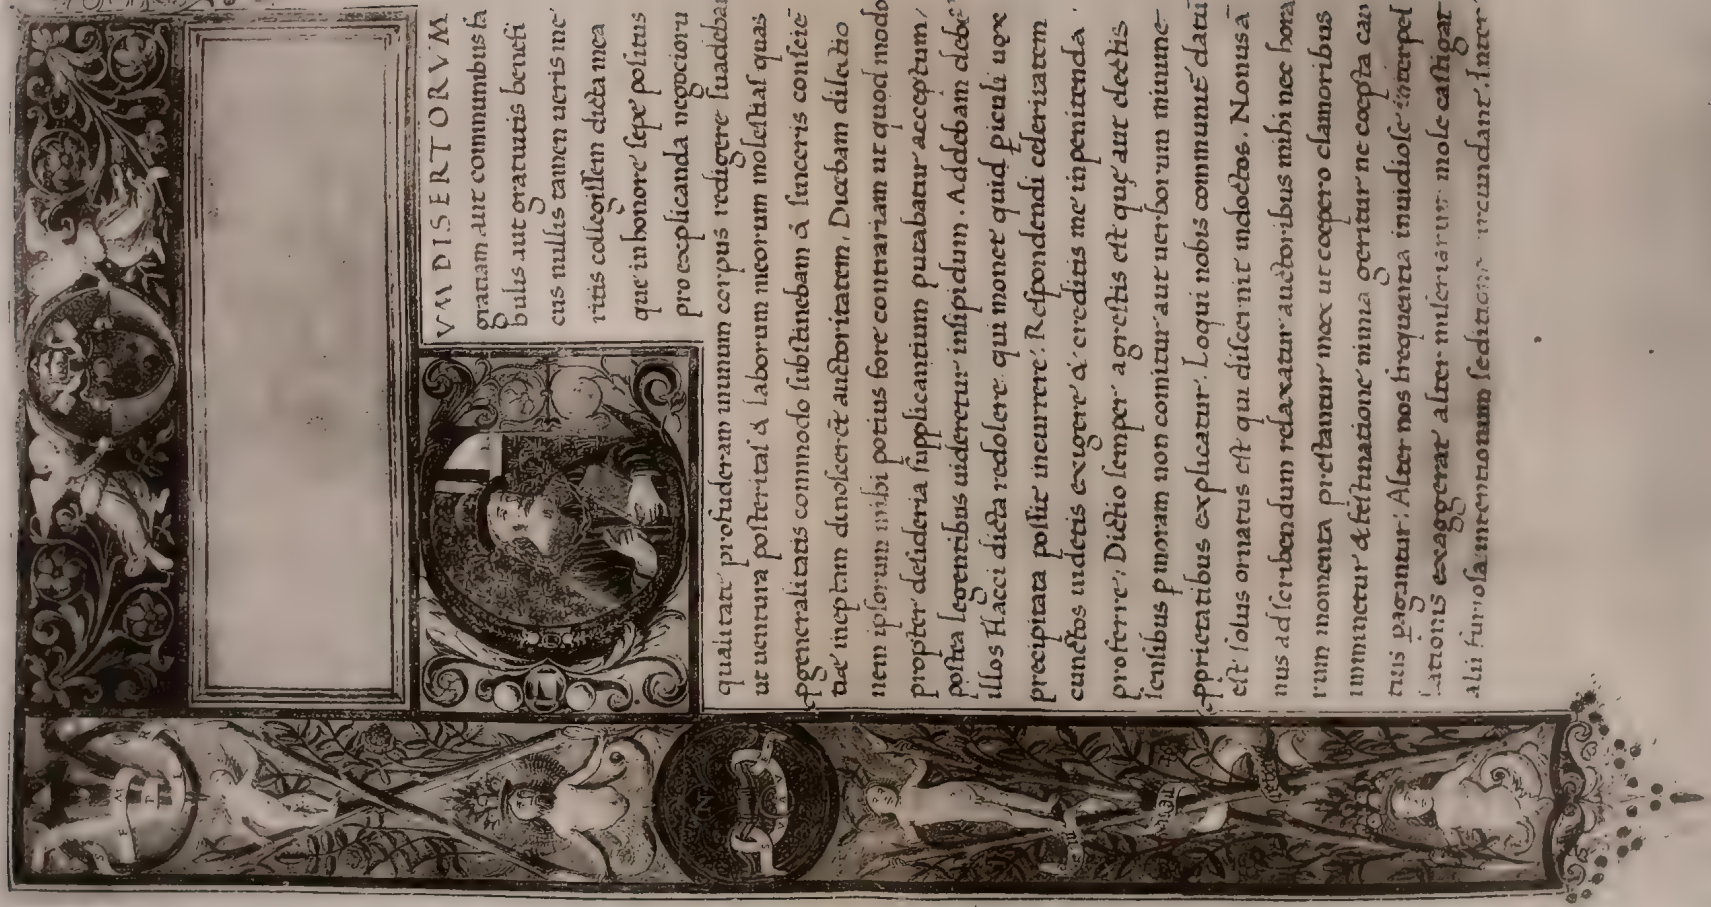 VM DISERTORVM
gratiam aut communibus fa
bulis aut gratuitis benefi
ciis nullis tamen ueris me
ritis collegissem dicta mea
que in honore sepe positus
pro explicanda negocioru
qualitate profuderam in unum corpus redigere suadeba
ut uentura posteritas & laborum meorum molestias quas
ꝓgeneralitatis commodo sustinebam & sinceris consciē
tiæ ineptam dinosceret auctoritatem. Dicebam dilectio
nem ipsorum mihi potius fore contrariam ut quod modo
propter desideria supplicantium putabatur acceptum,
postea legentibus uideretur insipidum. Addebam debe
illos Flacci dicta redolere qui monet quid ꝑiculi uox
precipitata possit incurrere. Respondendi celeritatem
cunctos uidetis exigere & creditis me inpenitenda
proferre. Dictio semper agrestis est quę aut electis
sensibus ꝑ moram non comitur aut uerborum minime
ꝓprietatibus explicatur. Loqui nobis communiē datū
est solus ornatus est qui discernit indoctos. Nonus ā
nus ad scribendum relaxatur auctoribus mihi nec hora
rum momenta prestantur mox ut coepero clamoribus
imminetur & festinatione nimia geritur ne coepta cau
tius pagantur. Alter nos frequentia inuidiose interpel
lationis exaggerat alter miseriarum mole castigat
alii furiosa intentionum seditione circundant. Inter